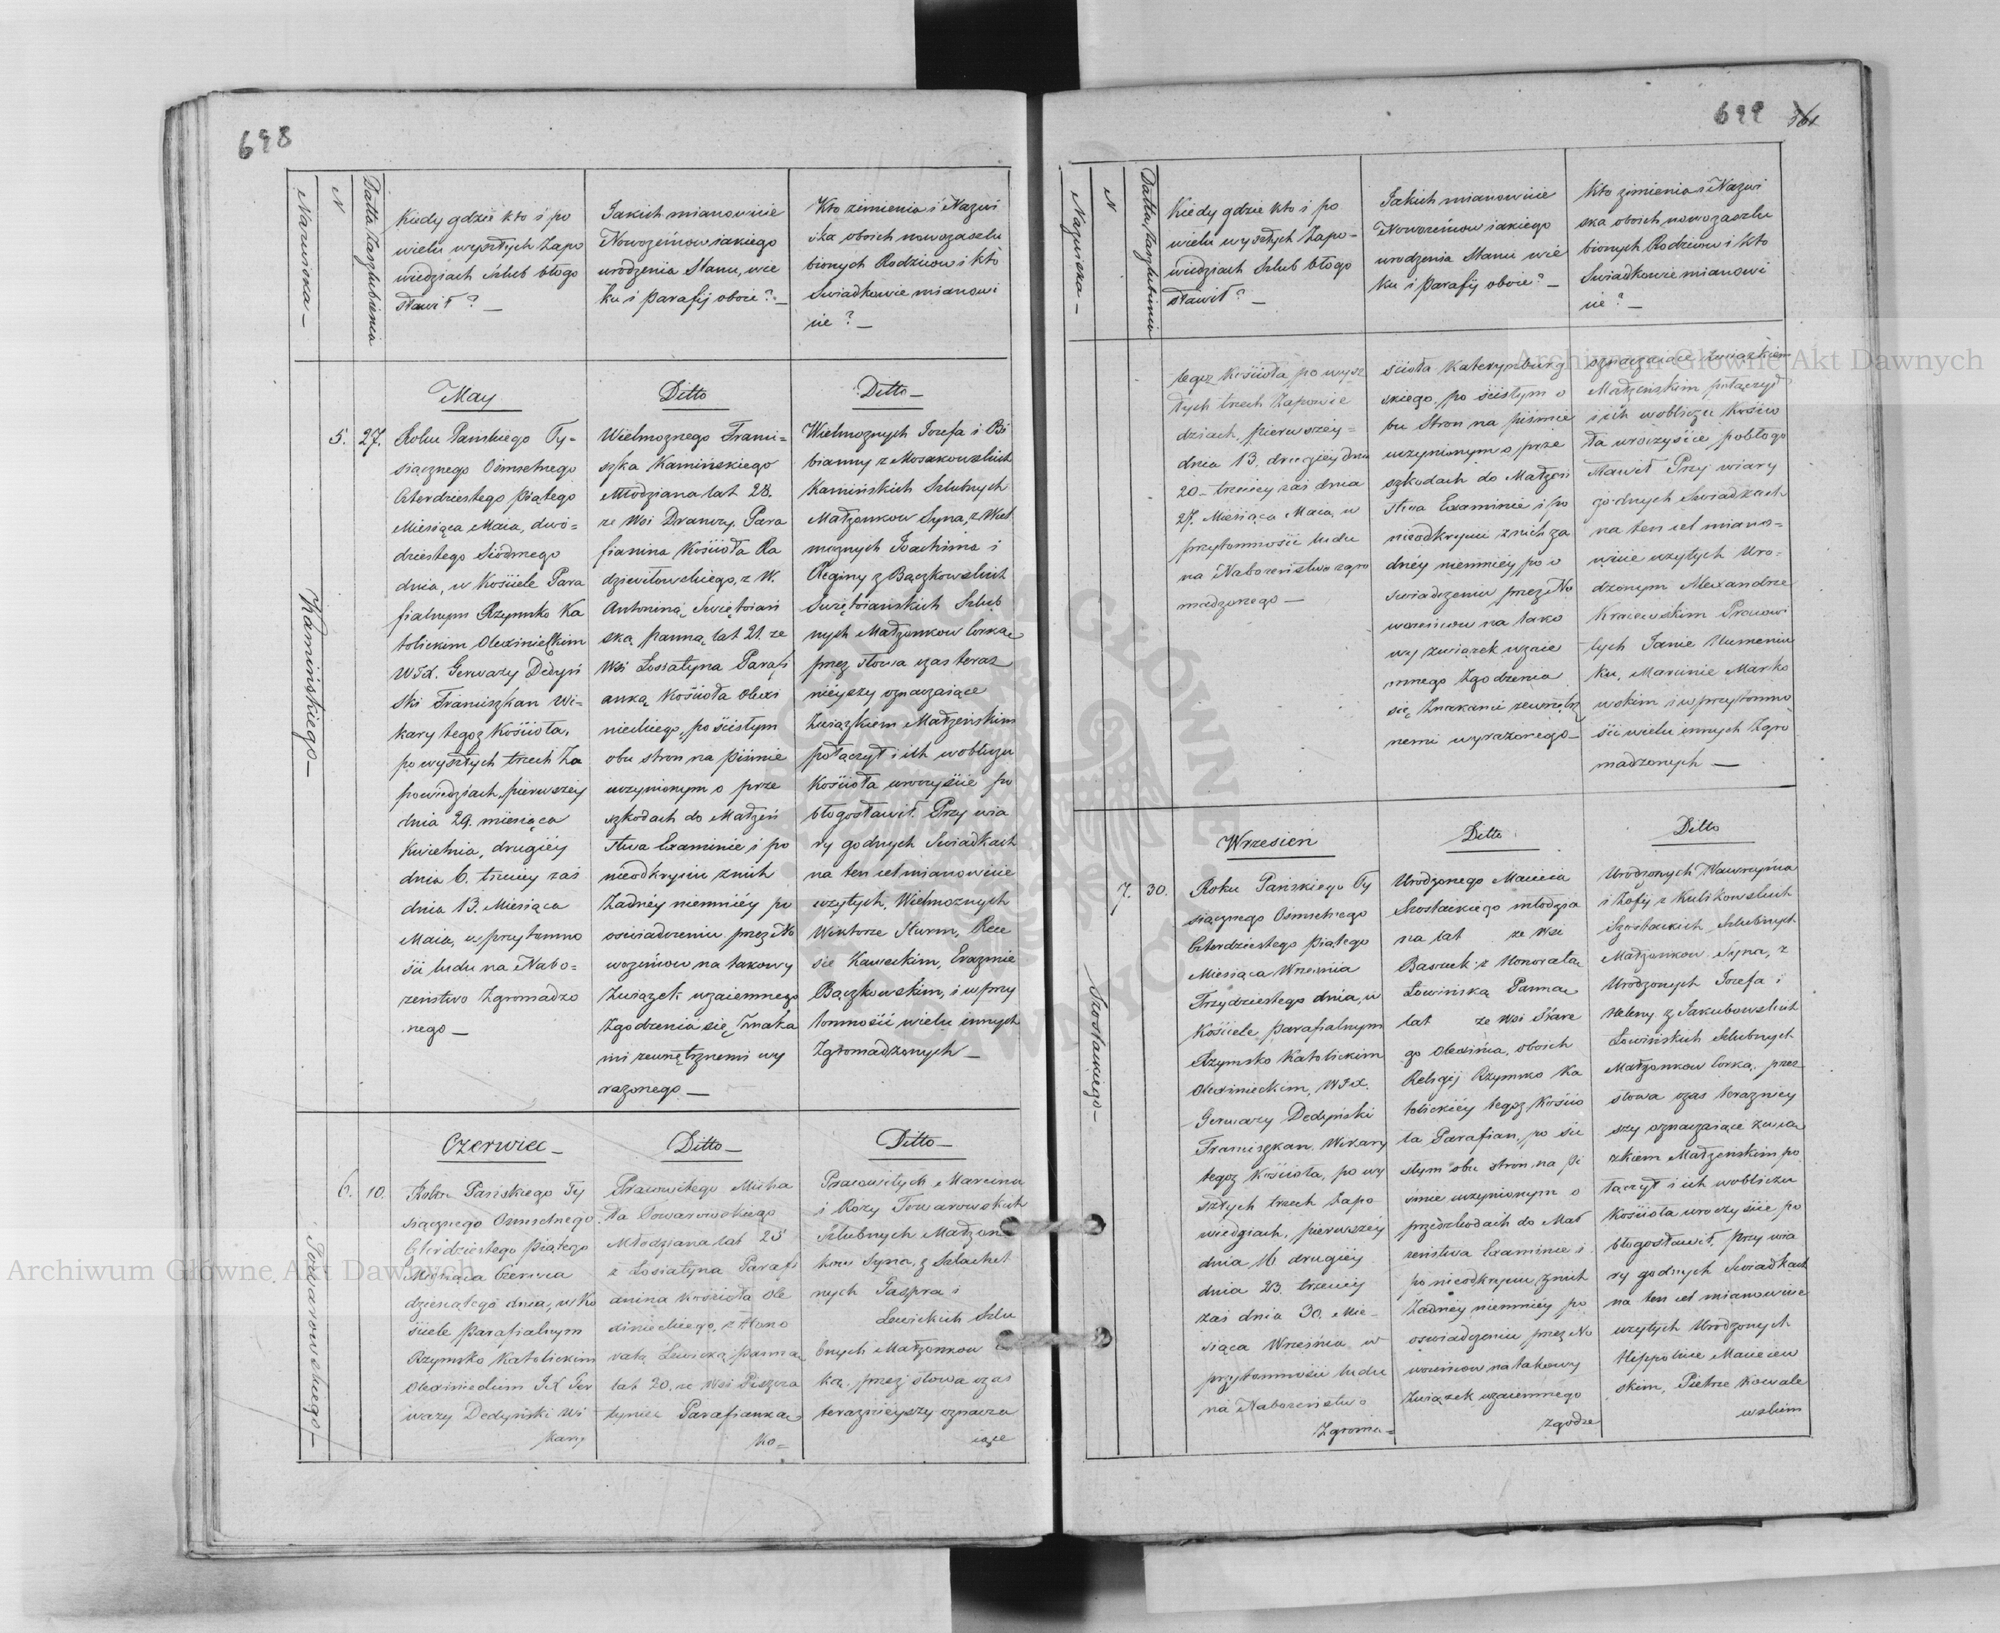 698
Nazwiska —
N
Datta Zaszlubienia
Kiedy gdzie kto i po
wielu wyszłych Zapo
wiedziach Szlub błogo
sławił ? —
Jakich mianowicie
Nowożeńcow iakiego
urodzenia Stanu, wie
ku i parafij oboie ? —
Kto z imienia i Nazwi
ska oboich nowozaszlu
bionych Rodziców i kto
Swiadkowie mianowi
cie ? —
Kamińskiego —
5.
27.
May
Roku Pańskiego Ty-
siącznego Osmsetnego
Czterdziestego piątego
Miesiąca Maia, dwó-
dziestego Siódmego
dnia, w Kościele Para
fialnym Rzymsko Ka
tolickim Olexinieckim
WJX. Gerwazy Dedyń
ski Franciszkan Wi-
kary tegoż Kościoła,
po wyszłych trzech Za
powiedziach, pierwszey
dnia 29. miesiąca
Kwietnia, drugiey
dnia 6. trzeciey zaś
dnia 13. Miesiąca
Maia, w przytomno
ści ludu na Nabo-
żeństwo Zgromadzo
nego —
Ditto
Wielmożnego Franci-
szka Kamińskiego
Młodziana lat 28.
ze Wsi Para
fianina Kościoła Ra
dziwiłłowskiego, z W.
Antoniną Swiętosiań
ską panną lat 21. ze
Wsi Łosiatyna Parafi
anką Kościoła Olexi
nieckiego, po ścisłym
obu stron na piśmie
uczynionym o prze
szkodach do Małżeń
stwa Examinie i po
nieodkryciu z nich
Żadnéy niemniéy po
oswiadczeniu przez No
wożeńcow na takowy
Związek wzaiemnego
Zgodzenia się, Znaka
mi zewnętrznemi wy
rażonego —
Ditto —
Wielmożnych Jozefa i Bi
bianny z Mosakowskich
Kamińskich Szlubnych
Małżonkow Syna, z Wiel
możnych Joachima i
Reginy z Bączkowskich
Swiętosiańskich Szlub
nych Małżonkow Corkę
przez słowa czas teraz
nieyszy oznaczaiące
Związkiem Małżeńskim
połączył i ich w obliczu
Kościoła uroczyście po
błogosławił. Przy wia
ry godnych Swiadkach
na ten cel mianowicie
użytych, Wielmożnych
Wiktorze Sturm, Rce
sie Kaweckim, Erazmie
Bączkowskim, i w przy
tomności wielu innych
Zgromadzonych —
Towarowskiego —
6.
10.
Czerwiec —
Roku Pańskiego Ty
siącznego Osmsetnego
Czterdziestego piątego
Miesiąca Czerwca
dziesiątego dnia, w Ko
ściele parafialnym
Rzymsko Katolickim
Olexinieckim JX Ger
wazy Dedyński Wi
kary
Ditto —
Pracowitego Micha
ła Towarowskiego
Młodziana lat 25
z Łosiatyna Parafi
anina Kościoła Ole
xinieckiego, z Hono
ratą Lewicką panną
lat 20. ze Wsi
Parafianką
Ka=
Ditto —
Pracowitych Marcina
i Rozy Towarowskich
Szlubnych Małżon
kow Syna, z Szlachet
nych Gaspra i
Lewickich Szlu
bnych Małżonkow
kę, przez słowa czas
teraznieyszy oznacza
iące
699
Nazwiska —
N
Datta Zaszlubienia
Kiedy gdzie kto i po
wielu wyszłych Zapo-
wiedziach Szlub błogo
sławił ? —
Jakich mianowicie
Nowożeńcow iakiego
urodzenia Stanu wie
ku i parafij oboie ? —
Kto z imienia i Nazwi
ska oboich nowozaszlu
bionych Rodziców i kto
Swiadkowie mianowi
cie ? —
tegoż Kościoła, po wysz
łych trzech Zapowie
dziach, pierwszey
dnia 13. drugiey dnia
20 trzeciey zaś dnia
27. Miesiąca Maia, w
przytomności ludu
na Nabożeństwo zgro
madzonego —
ścioła Katerynburg
skiego, po ścisłym o
bu Stron na piśmie
uczynionym o prze
szkodach do Małżeń
stwa Examinie i po
nieodkryciu z nich ża
dnéy niemniéy po o
swiadczeniu przez No
wożeńcow na tako
wy związek wzaie
mnego Zgodzenia
się, Znakami zewnętrz
nemi wyrażonego —
oznaczaiące związkiem
Małżeńskim połączył
i ich w obliczu Kościo
ła uroczyście pobłogo
sławił Przy wiary
godnych Swiadkach
na ten cel miano-
wicie użytych Uro-
dzonym Alexandrze
Kraiewskim Pracowi
tych Janie Klimeniu
ku, Marcinie Marko
wskim i w przytomno
ści wielu innych Zgro
madzonych —
Szostackiego —
7.
30.
Wrzesień
Roku Pańskiego Ty
siącznego Osmsetnego
Czterdziestego piątego
Miesiąca Września
Trzydziestego dnia, w
Kościele parafialnym
Rzymsko Katolickim
Olexinieckim, WJX.
Gerwazy Dedyński
Franciszkan Wikary
tegoż Kościoła, po wy
szłych trzech Zapo
wiedziach, pierwszey
dnia 16 drugiéy
dnia 23. trzeciey
zaś dnia 30. Mie-
siąca Września w
przytomności ludu
na Nabożeństwo
Zgroma=
Ditto
Urodzonego Macieia
Szostackiego młodzia
na lat ze Wsi
Baszuk z Honoratą
Łowińską Panną
lat ze Wsi Stare
go Olexińca, oboich
Religij Rzymsko Ka
tolickiéy tegoż Kościo
ła Parafian, po ści
słym obu stron na pi
śmie uczynionym o
przeszkodach do Mał
żeństwa Examinie i
po nieodkryciu z nich
Żadnéy niemniéy po
oswiadczeniu przez No
wożeńcow na takowy
Związek wzaiemnego
zgodze
Ditto
Urodzonych Wawrzyńca
i Zofij z Kulikowskich
Szostackich Szlubnych
Małżonkow Syna, z
Urodzonych Jozefa i
Heleny z Jakubowskich
Łowińskich Szlubnych
Małżonkow Corką, przez
słowa czas terazniey
szy oznaczaiące zwią
zkiem Małżeńskim po
łączył i ich w obliczu
Kościoła uroczyście po
błogosławił, przy wia
ry godnych Swiadkach
na ten cel mianowicie
użytych Urodzonych
Hippolicie Macieiew
skim, Pietrze Kowale
wskim
Archiwum Główne Akt Dawnych
Archiwum Główne Akt Dawnych